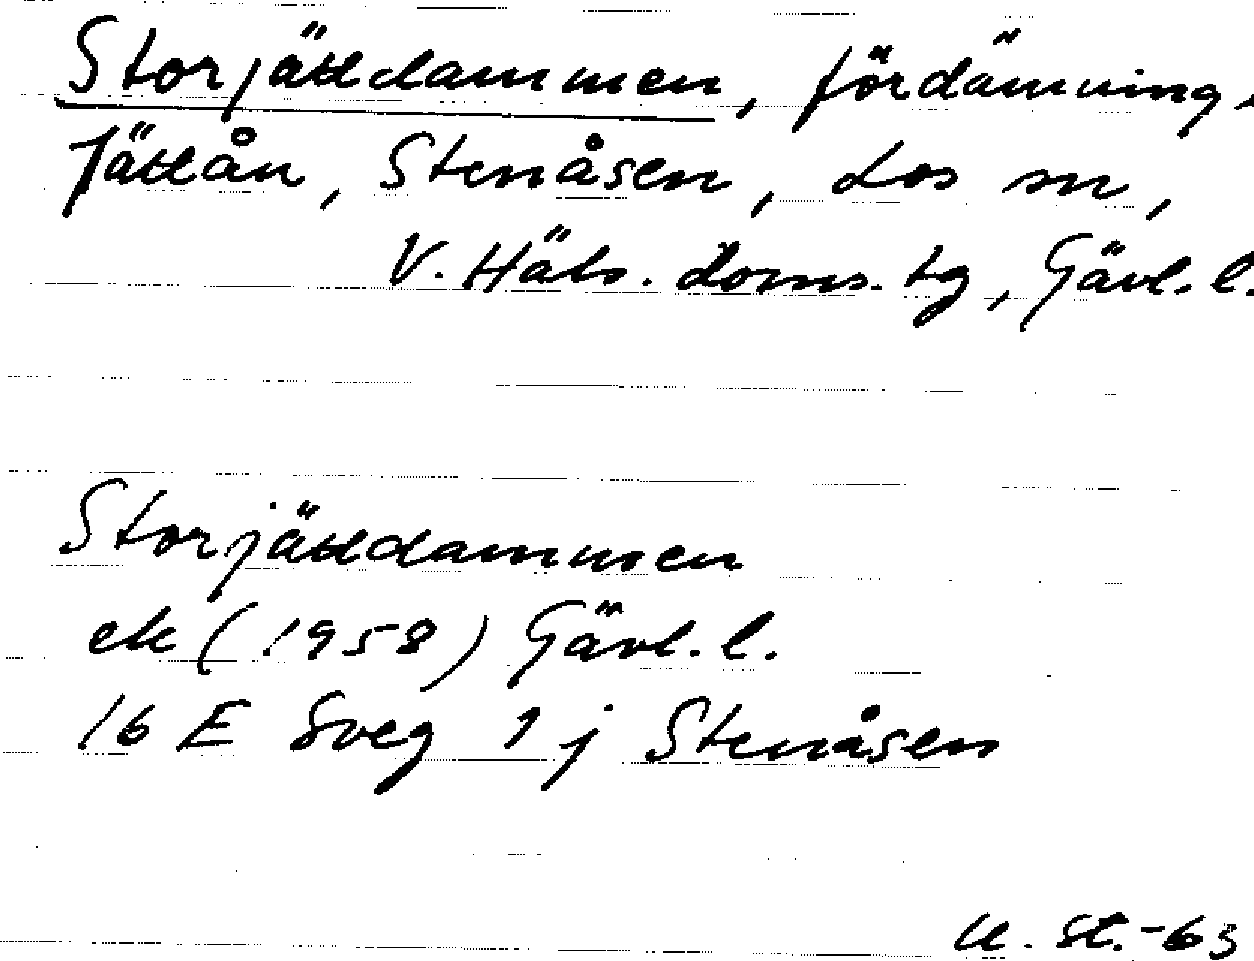 Storjätteldammen, fördämning,
Jättelån, Stenåsen, Los sn,
V. Häls. doms. tg, Gävl. l.
Storjätteldammen
ek (1958) Gävl. l.
16 E Sveg 1 j Stenåsen
U. St.-63